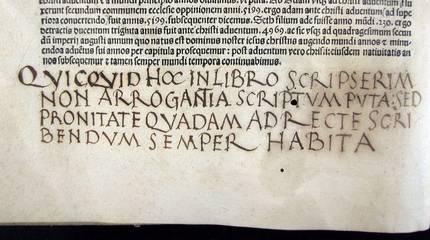 xerunt secundum communem ecclesie opinionem anni. 5199. ergo adam ante christi aduentum/ ad supe
riora conuertendo/ fuit annis. 5199. subsequenter dicemus. Seth filium ade fuisse anno mūdi. 230. ergo
detractis ducentum triginta annis fuit ante christi aduentum. 4969. ac sic vsq; ad quadragesimum secun
dū imperij augusti annum quo natus est dominus noster iesus christus augendo mundi annos & minu
endo aduentus sui annos per capitula prosequemur: post aduentum vero christi: eiusdem natiuitatis an
nos subsequemur & tamen semper mundi tempora continuabimus.
QVICQVID HOC IN LIBRO SCRIPSERIM
NON ARROGAÑIA SCRIPTVM PVTA: SED
PRONITATE QVADAM AD RECTE SCRI
BENDVM SEMPER HABITA